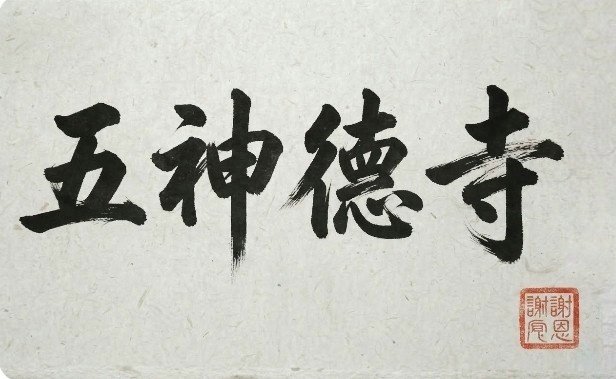 五神德寺
謝恩
謝